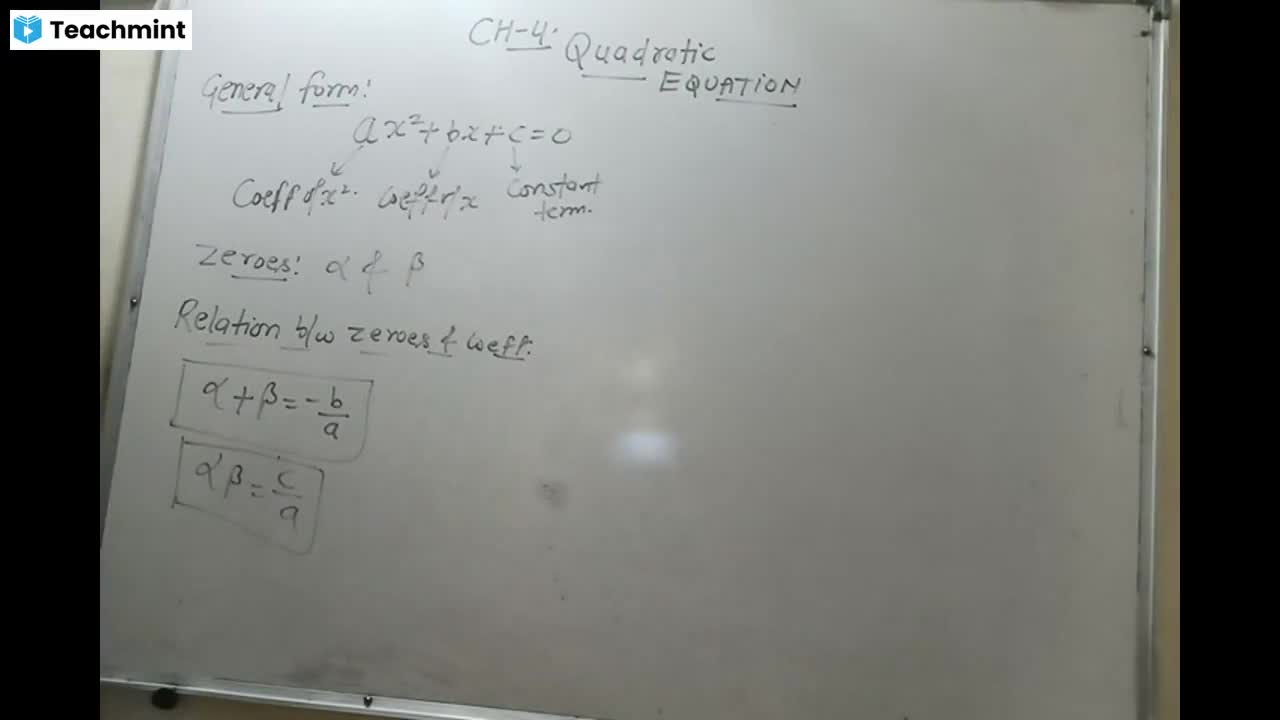 Teachmint
CH-4.
Quadratic
EQUATION
General form:
ax²+bx+c=0
Coeff of x². coeff of x constant
term.
Zeroes: α & β
Relation b/w zeroes & coeff.
α+β=-b/a
αβ=c/a